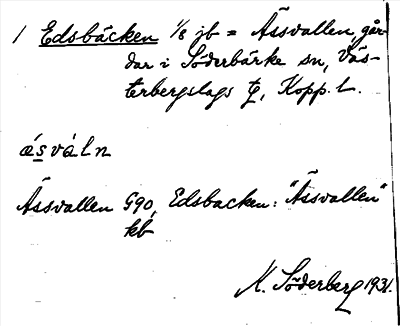 1 Edsbäcken 1/8 jb = Ässvallen, går-
dar i Söderbärke sn, Väs-
terbergslags tg, Kopp. L.
ásváln
Ässvallen G90, Edsbacken: "Ässvallen"
kb
K. Söderberg 1931.